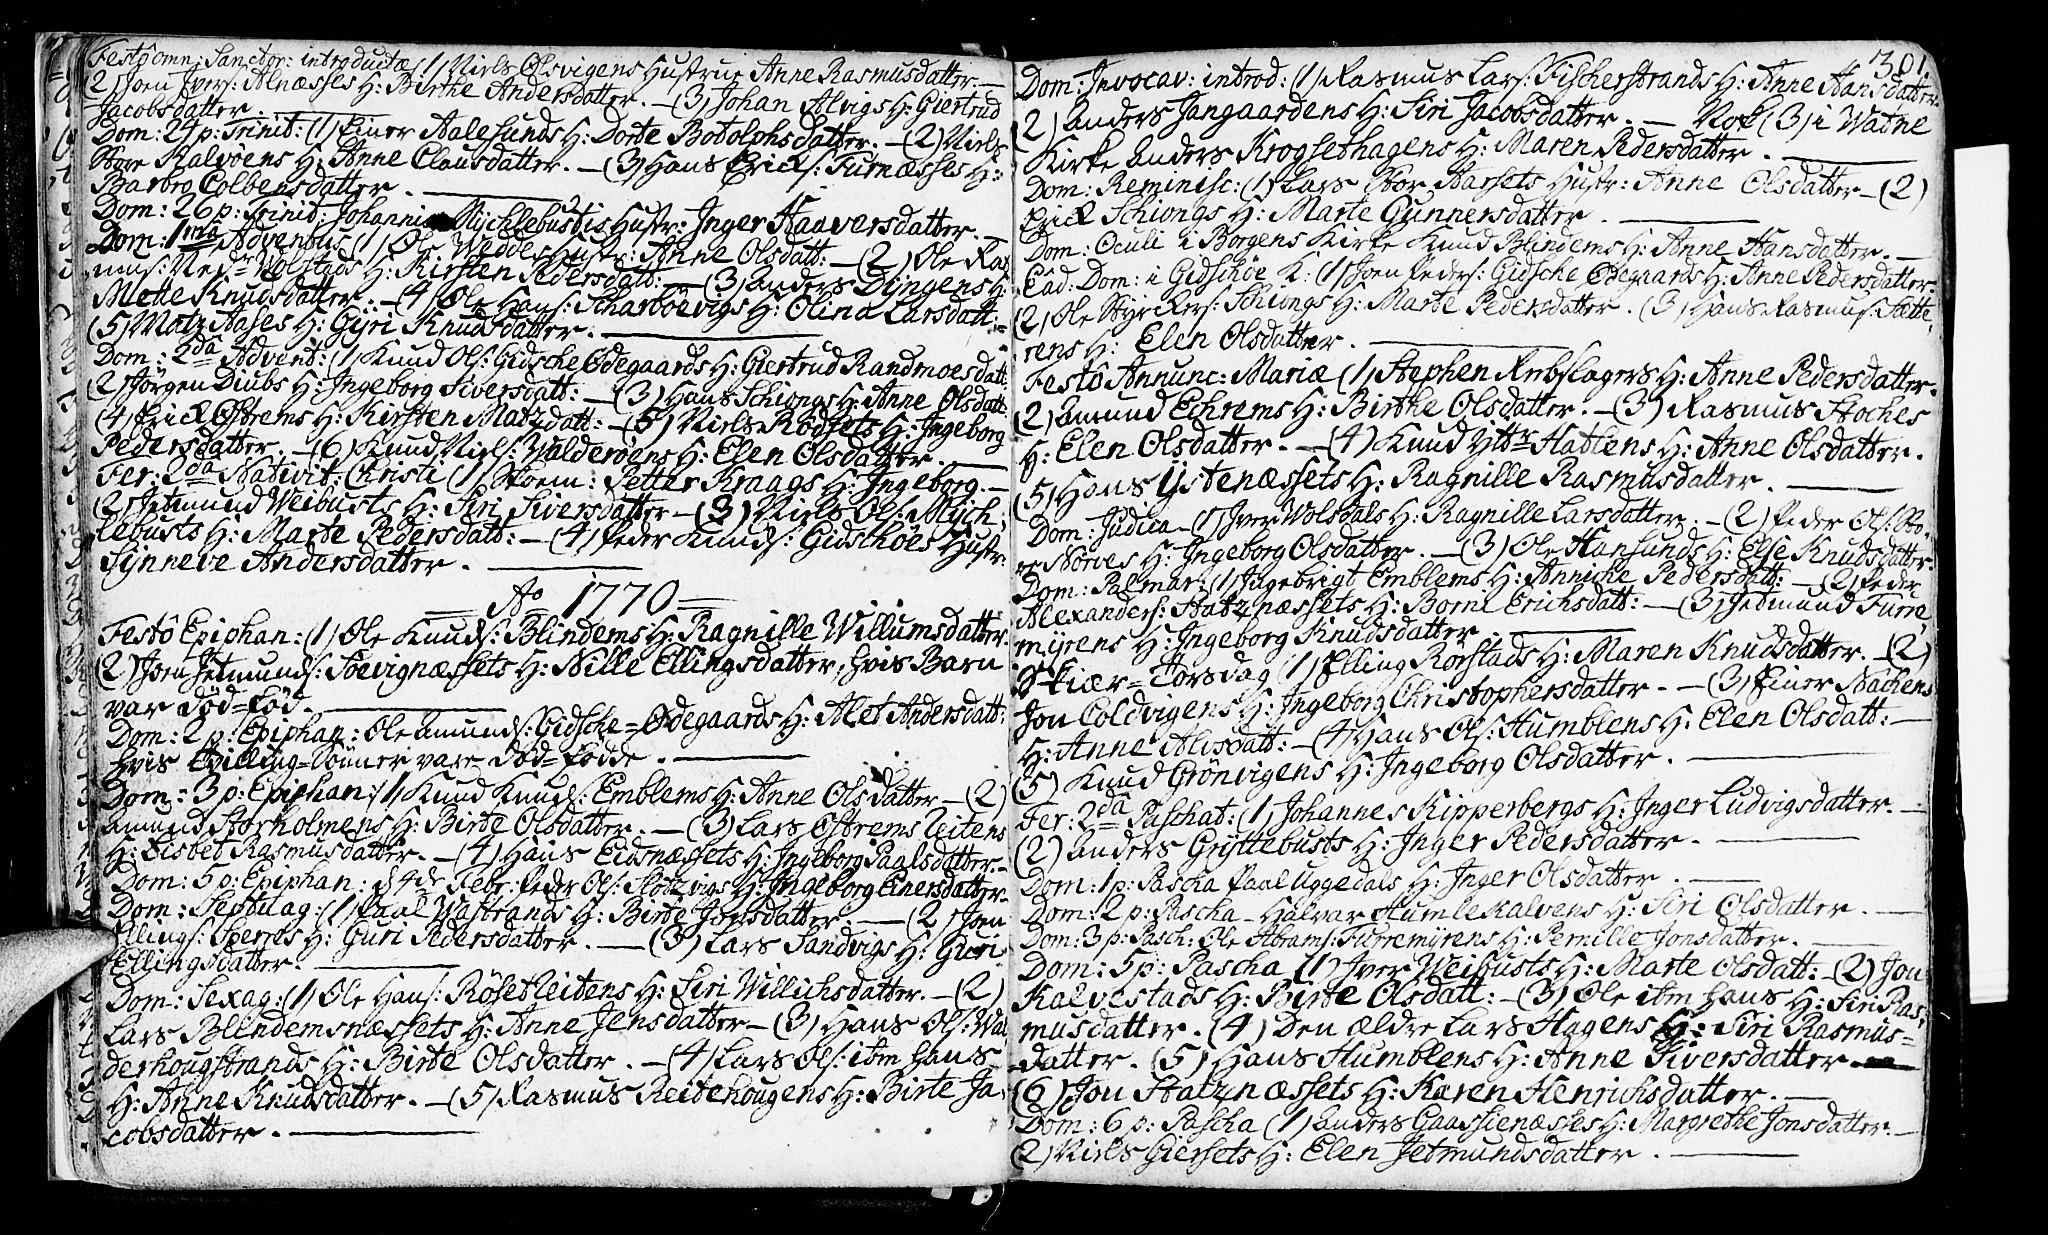 Festô omn: Sanctor: introductæ (1) Niels Olsvigens Hustrue Anne Rasmusdatter. —
2) Joen Ivers: Alnæsses H: Birthe Andersdatter. — (3) Johan Alvigs H: Giertrud
Jacobsdatter. —
Dom: 24 p: Trinit: (1) Einer Aalesunds H: Dorte Botolphsdatter. — (2) Niels
Store Kalvöens H: Anne Clausdatter. — (3) Hans Ericks: Furnæsses H:
Barbro Colbensdatter. —
Dom: 26 p: Trinit: Johannis Mychlebustis Hustr: Inger Haaversdatter. —
Dom: 1ma Adventus (1) Ole Weddes Hustr: Anne Olsdatt: — (2) Ole Ras
mus: Nedr Wolstads H: Kirsten Pedersdatt: — (3) Anders Dyngens H:
Mette Knudsdatter. — (4) Ole Hans: Scharboevigs H: Olina Larsdatt: =
(5) Matz Aases H: Gyri Knudsdatter. —
Dom: 2da Advent: (1) Knud Ols: Gidsche Ödegaards H: Giertrud Randmoesdatt
(2) Jörgen Diubs H: Ingeborg Siversdatt: — (3) Hans Schiongs H: Anne Olsdatt.
(4) Erick Östrems H: Kirsten Matzdatt: — (5) Niels Rödsets H: Ingeborg
Pedersdatter. — (6) Knud Niels: Walderöens H: Elen Olsdatter. —
Fer: 2da Nativit: Christi (1) Skoem: Petter Kraags H: Ingeborg. —
(2) Jetmund Weibusts H: Siri Siversdatter — (3) Niels Ols: Mych,
lebusts H: Marte Pedersdatt: — (4) Peder Knuds: Gidschöes Hustr:
Synneve Andersdatter. —
Ao 1770
Festô Epiphan: (1) Ole Knuds: Blindems H: Ragnille Willumsdatter.
(2) Joen Jetmunds: Soevignæssets H: Nille Ellingsdatter, hvis Barn
var död-föd. —
Dom: 2 p: Epiphan: Ole Amunds: Gidsche-Ödegaards H: Alet Andersdatt:
hvis Tvilling-Sönner vare död-födde. —
Dom: 3 p: Epiphan: (1) Knud Knuds: Emblems H: Anne Olsdatter — (2)
Amund Storholmens H: Birte Olsdatter. — (3) Lars Östrems Leitens
H: Lisbet Rasmusdatter. — (4) Hans Eidnæssets H: Ingeborg Paalsdatter. —
Dom: 5 p: Epiphan: d 4de Febr: Peder Ols: Slotzvigs H: Ingeborg Einersdatter.
Dom: Septuag: (1) Paal Wastrands H: Birte Jonsdatter. — (2) Joen
Ellings: Sperres H: Guri Pedersdatter. — (3) Lars Sandvigs H: Guri
Ellingsdatter. —
Dom: Sexag: (1) Ole Hans: Rösetleitens H: Siri Willichsdatter. — (2)
Lars Blindemsnæssets H: Anne Jensdatter — (3) Hans Ols: Wal
derhougstrands H: Birte Olsdatter. — (4) Lars Ols: ibm Hans
H: Anne Knudsdatter. — (5) Rasmus Reitehougens H: Birte Ja,
cobsdatter. —
301.
Dom: Invocav: introd: (1) Rasmus Lars: Fischerstrands H: Anne Hansdatter.
2) Anders Jangaardens H: Siri Jacobsdatter. — Nok (3) i Watne
Kirke Anders Krogsethagens H: Maren Pedersdatter. —
Dom: Reminisc: (1) Lars Stor Harsets Hustr: Anne Olsdatter — (2)
Erick Schiongs H: Marte Gunnersdatter. —
Dom: Oculi i Borgens Kirke Knud Blindems H: Anne Hansdatter. —
Eâd: Dom: i Gidschöe K: (1) Joen Peders: Gidsche Ödegaards H: Anne Pedersdatter.
(2) Ole Styrckers: Schiongs H: Marte Pedersdatter. (3) Hans Rasmus: Sætte,
rens H: Elen Olsdatter. —
Festô Annunc: Mariæ (1) Stephen Rebslagers H: Anne Pedersdatter.
(2) Amund Echrems H: Birthe Olsdatter. — (3) Rasmus Stoches
H: Elen Olsdatter. — (4) Knud Yttr Hatlens H: Anne Olsdatter.
(5) Hans Ystenæssets H: Ragnille Rasmusdatter. —
Dom: Judica — (1) Iver Wolsdals H: Ragnille Larsdatter. — (2) Peder Ols: Sto,
re Nörves H: Ingeborg Olsdatter. — (3) Ole Hansunds H: Else Knudsdatter.
Dom: Palmar: (1) Ingebrigt Emblems H: Anniche Pedersdatt: — (2) Peder
Alexanders: Hatznæssets H: Borni Erichsdatt: — (3) Jetmund Furre,
myrens H: Ingeborg Knudsdatter. —
Skiær-Torsdag (1) Elling Rörstads H: Maren Knudsdatter. — (2)
Jon Coldvigens H: Ingeborg Christophersdatter. — (3) Einer Nachens
H: Anne Alvsdatt: — (4) Hans Ols: Humblens H: Elen Olsdatt: —
(5) Knud Grönvigens H: Ingeborg Olsdatter. —
Fer: 2da Paschat: (1) Johannes Kipperbergs H: Inger Ludvigsdatter. —
(2) Anders Gryttebusts H: Inger Pedersdatter. —
Dom: 1 p: Pascha Paal Uggedals H: Inger Olsdatter. —
Dom: 2 p: Pascha — Halvar Humlekalvens H: Siri Olsdatter. —
Dom: 3 p: Pasch: Ole Abrams: Furremyrens H: Pernille Jonsdatter. —
Dom: 5 p: Pascha (1) Iver Weibusts H: Marte Olsdatt: — (2) Jon
Kalvestads H: Birte Olsdatt: — (3) Ole ibm Hans H: Siri Ras,
musdatter. (4) Den ældre Lars Hagens H: Siri Rasmus-
datter. (5) Hans Humblens H: Anne Siversdatter —
(6) Jon Hatznæssets H: Karen Henrichsdatter. —
Dom: 6 p: Pascha (1) Anders Gaassienæsses H: Margrethe Jonsdatter. —
(2) Niels Giersets H: Elen Jetmundsdatter. —